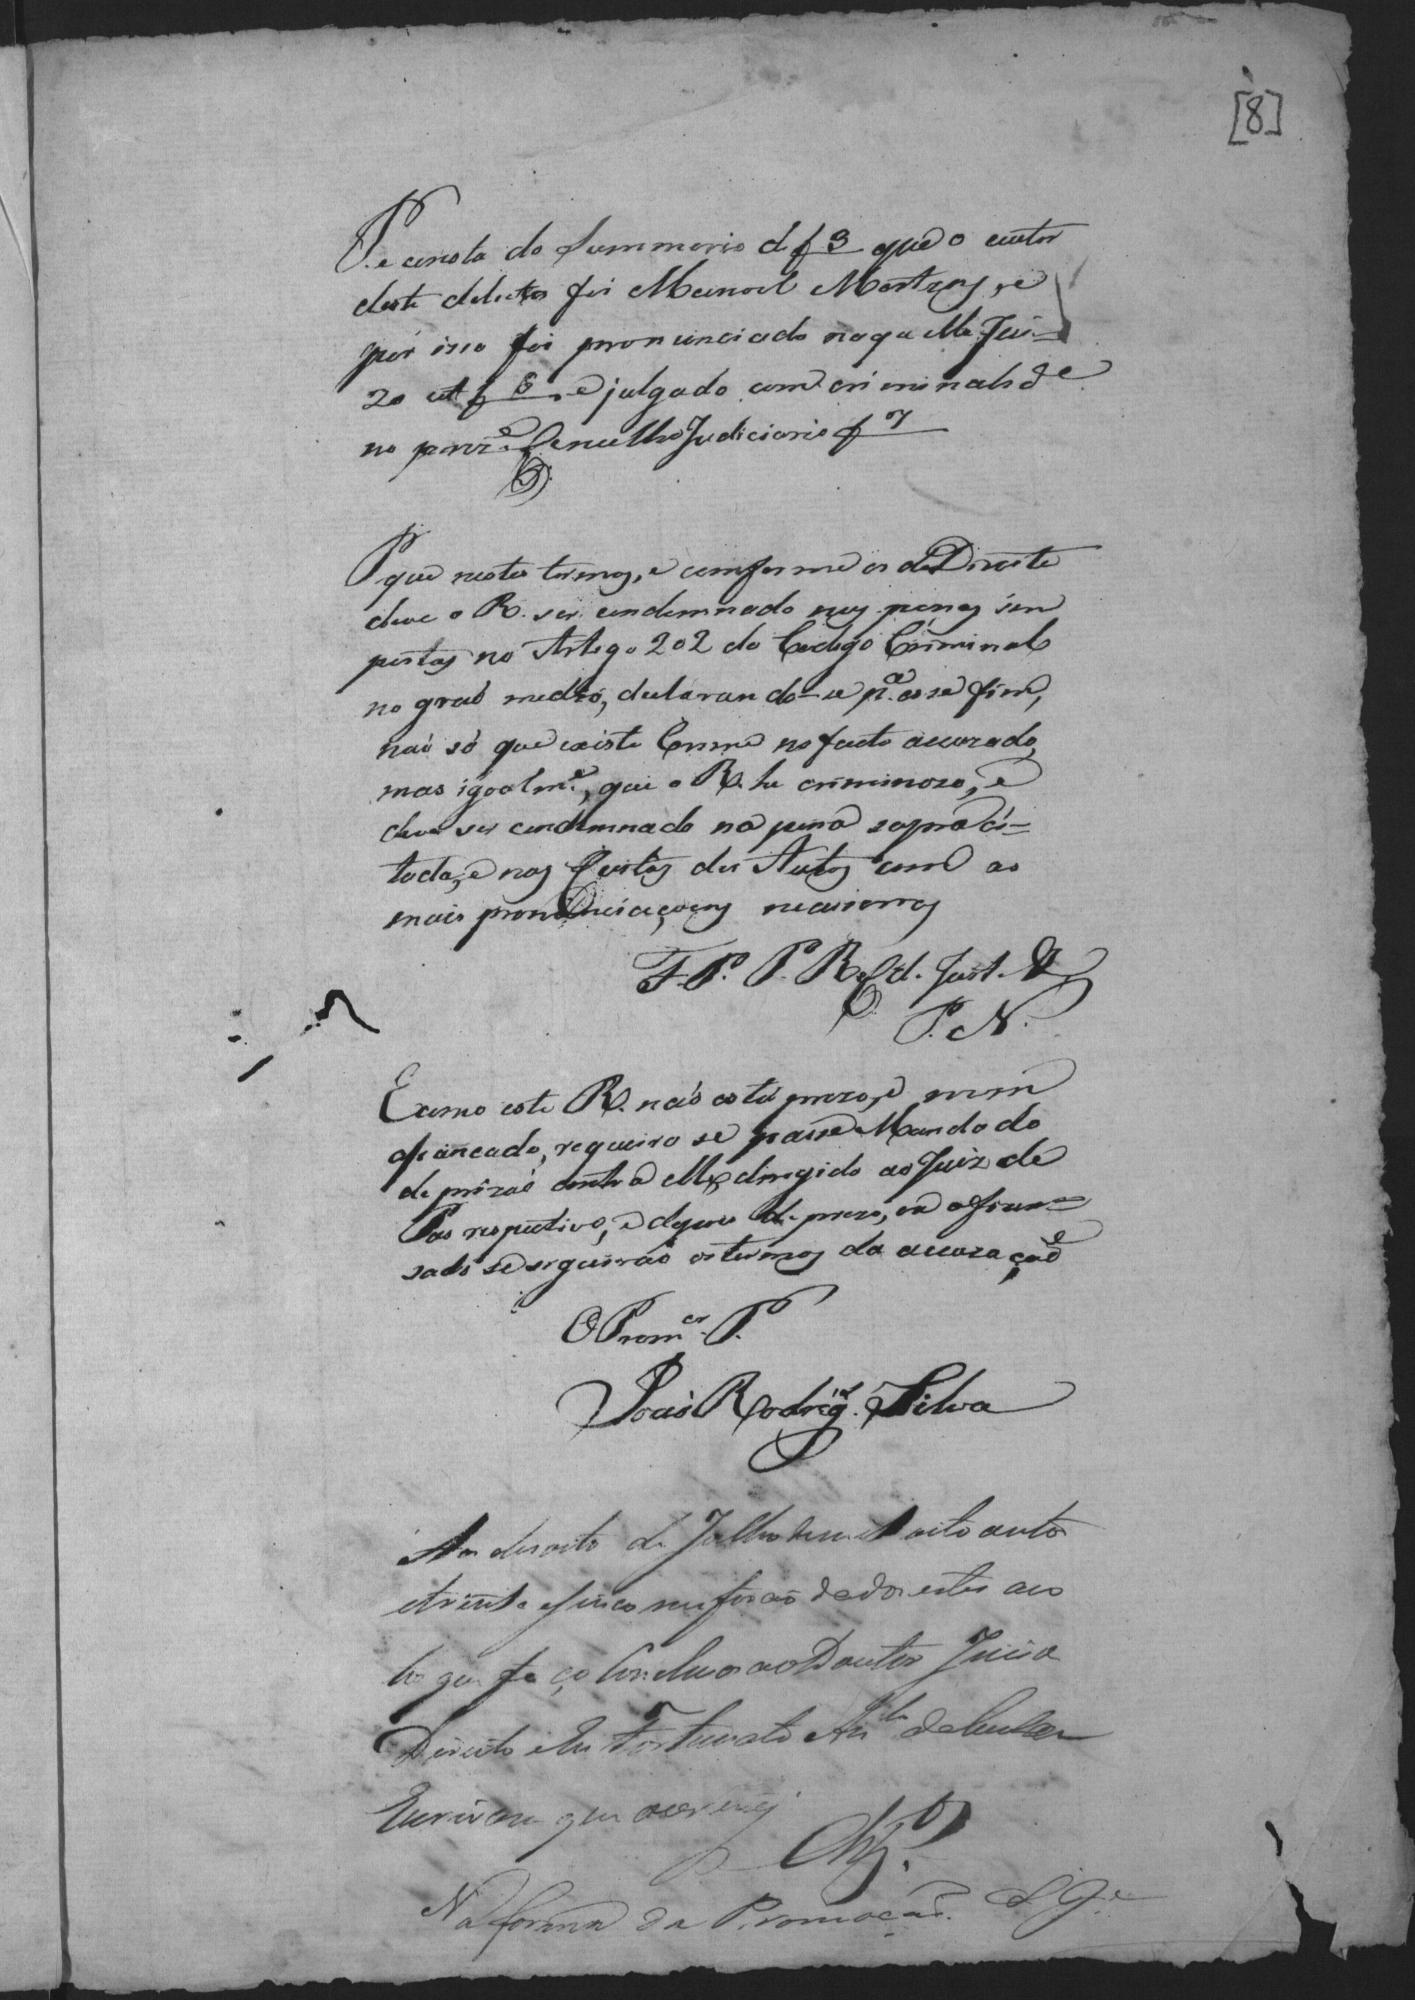 [8]
P. e consta do Summario de f 3 que o autor
deste delicto foi Manoel Martins, e
por isso foi pronunciado naquelle Jui-
zo af 6, e julgado com criminalid.e
no prez.e Concelho Judiciario f 7
P. que nestes termos, e comforme os de Direito
deve o R. ser condemnado nas penas im
postas no Artego 202 do Codego Criminal
no graó medio, declarando-se p.a esse fim,
naó só que existe Crime no facto accuzado,
mas igoalm.e, que o R. he criminozo, e
deve ser condemnado na pena sopra ci-
tada, e nas Custas dos Autos com as
mais pronunciaçoens necessarias
F. P. P. R. e C. d. Just.
P. N.
E como este R. naó está prezo, e nem
afiançado, requeiro se passe Mandado
de prizaó contra elle, dirigido ao Juiz de
Pas respectivo, e depois de prezo, ou afian-
sado se seguiraó os termos da accuzaçaõ
O Prom.or P.
Joaó Rodrig.s Silva
Aos desoito de Julho de mil oito centos
e trinta e sinco me foraõ dados estes au
tos que faço Concluzos ao Doutor Juis de
Direito e Eu Fortunato
Escrivam que escrevi
Clz.o
Na forma da Promoçaõ.